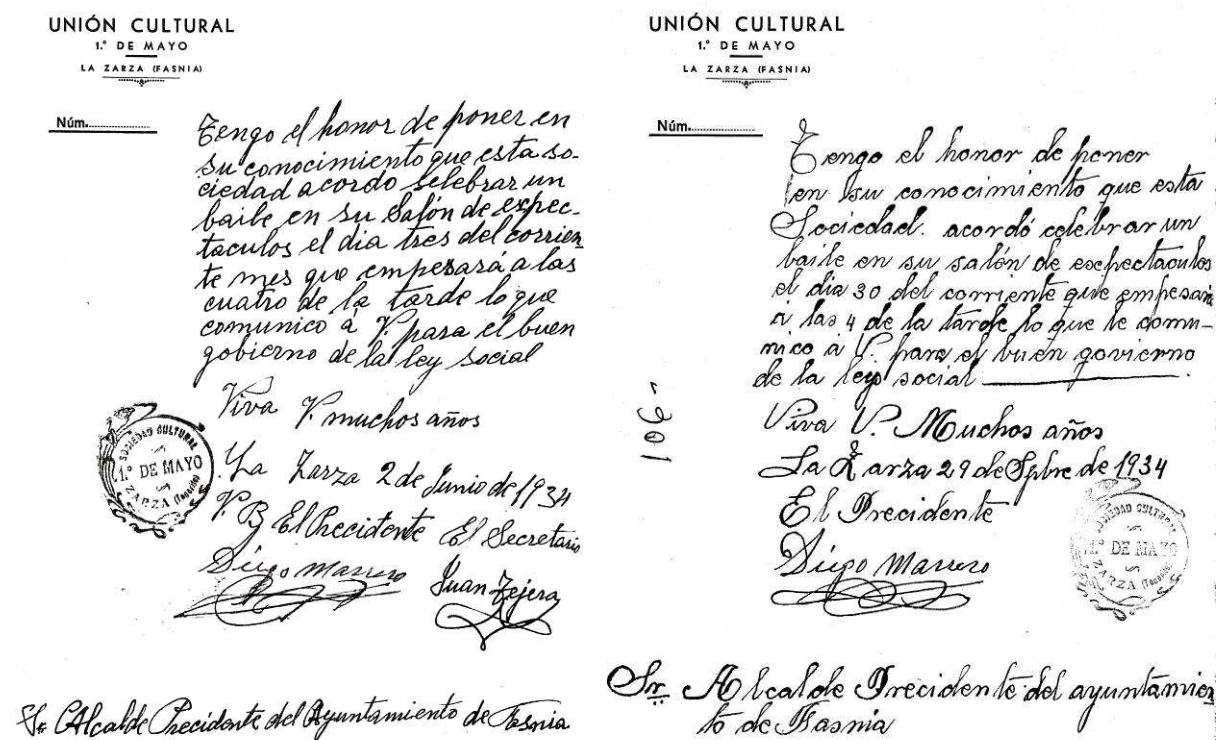 UNIÓN CULTURAL
1.º DE MAYO
LA ZARZA (FASNIA)
Núm.
Tengo el honor de poner en
su conocimiento que esta so-
ciedad acordo selebrar un
baile en su Salón de espec-
taculos el dia tres del corrien
te mes que empesará a las
cuatro de la tarde lo que
comunico á V. para el buen
gobierno de la ley social
Viva V. muchos años
La Zarza 2 de Junio de 1934
V. B El Precidente El Secretario
Diego Marrero Juan Tejera
SOCIEDAD CULTURAL
1.º DE MAYO
ZARZA
Sr. Alcalde Precidente del Ayuntamiento de Fasnia
UNIÓN CULTURAL
1.º DE MAYO
LA ZARZA (FASNIA)
Núm.
Tengo el honor de poner
en su conocimiento que esta
Sociedad. acordó celebrar un
baile en su salón de espectaculos
el dia 30 del corriente que empesará
a las 4 de la tarde lo que le comu-
nico a V. para el buen govierno
de la ley social
Viva V. Muchos años
La Zarza 29 de Spbre de 1934
El Precidente
Diego Marrero
SOCIEDAD CULTURAL
1.º DE MAYO
ZARZA
Sr. Alcalde Precidente del ayuntamien
to de Fasnia